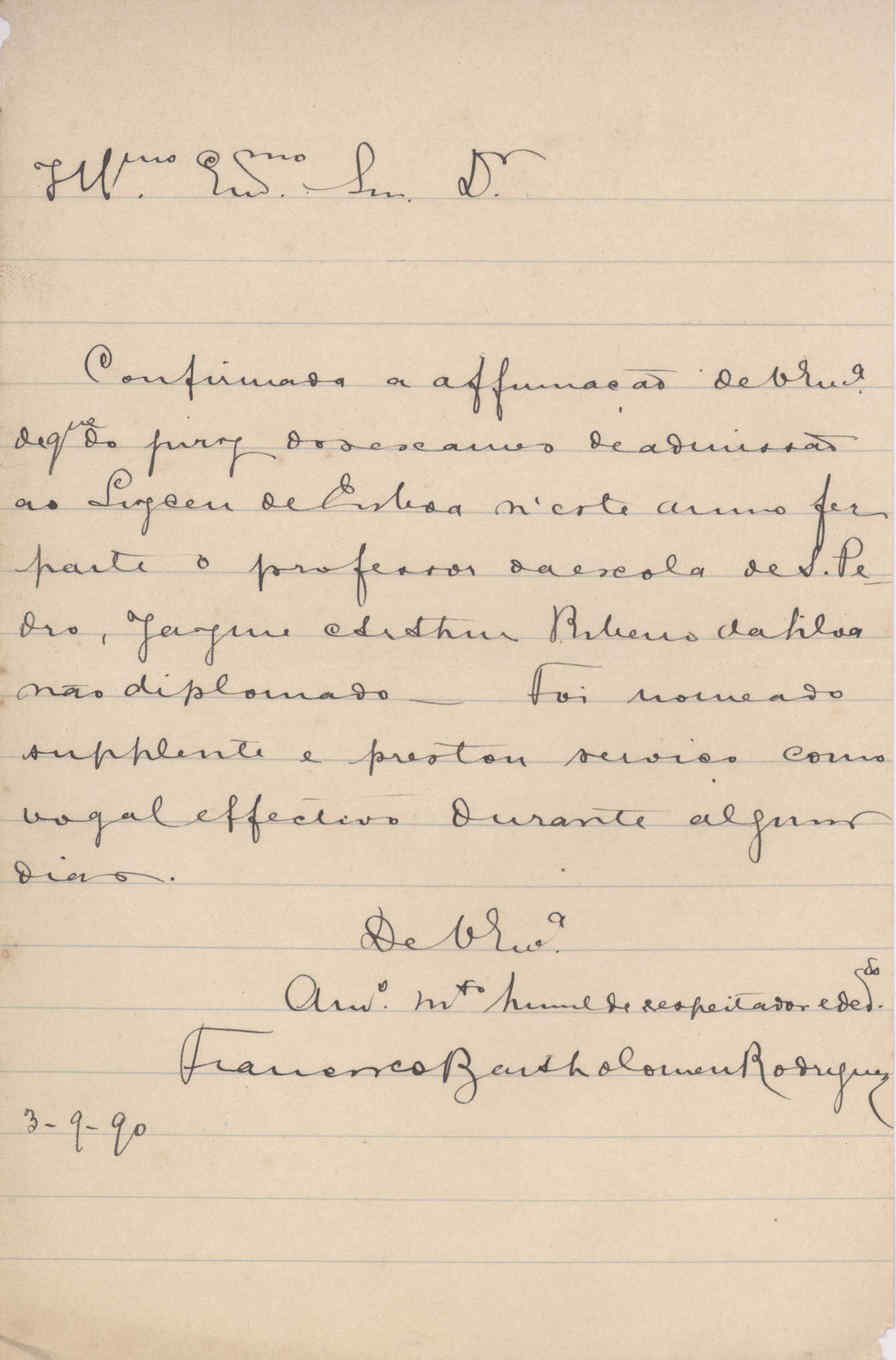 Ill.mo Ex.mo Snr. Dr.
Confirmada a affirmação de V Ex.a
de q.ue do jury dos exames de admissão
ao Lyceu de Lisboa n'este anno fez
parte o professor da escola de S. Pe-
dro, Jayme Arthur Ribeiro da Silva
não diplomado — Foi nomeado
supplente e prestou serviço como
vogal effectivo durante alguns
dias.
De V Ex.a
Am.o m.to humilde respeitador e ded.do
Francisco Bartholomeu Rodrigues
3-9-90